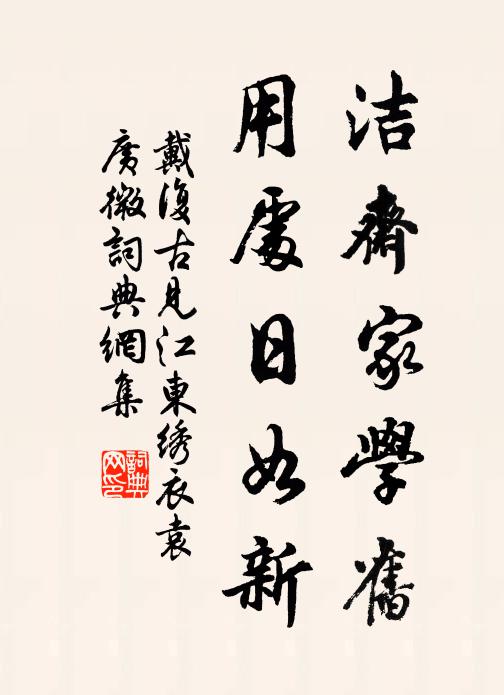 洁齋家學舊
用處日如新
戴復古見江東绣衣袁
廣微詞典網集
詞典
网印